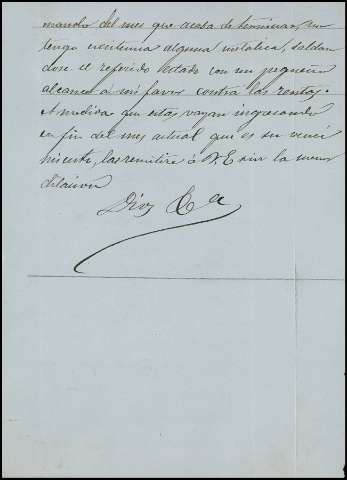 manché del mes que acaba de terminar, no
tengo existencia alguna metálica, saldan
dose el referido estado con un pequeño
alcance á mi favor contra las rentas.
A medida que estas vayan ingresando
en fin del mes actual que es su venci
miento, las remitiré á V.E sin la menor
dilacion
Dios &a